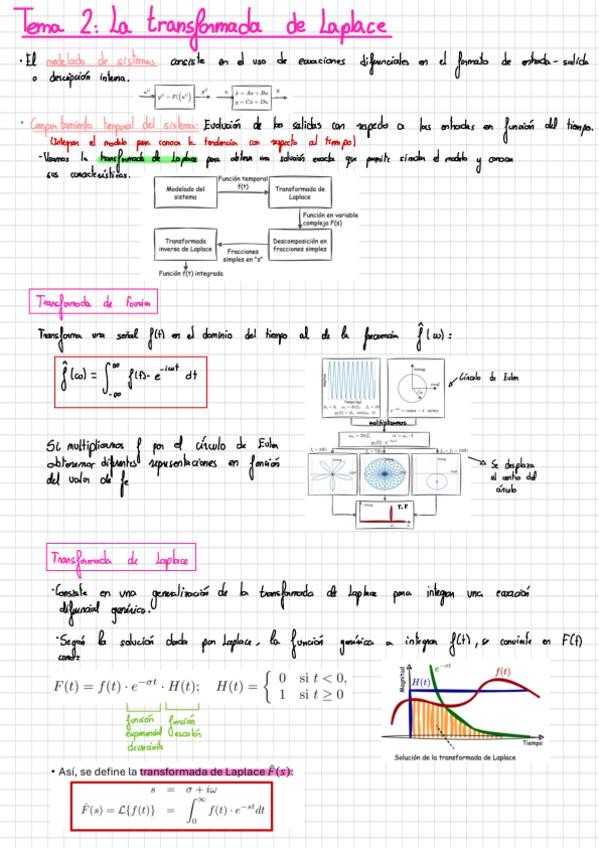 Tema 2: La transformada de Laplace
· El modelado de sistemas consiste en el uso de ecuaciones diferenciales en el formato de entrada-salida
o descripción interna.
ẋ = Ax + Bu
y = Cx + Du
· Comportamiento temporal del sistema: Evaluación de las salidas con respecto a las entradas en función del tiempo.
(Integran el modelo para conocer la tendencia con respecto al tiempo)
- Usamos la transformada de Laplace para obtener una solución exacta que permite simular el modelo y conocer
sus características.
Modelado del sistema
Función temporal f(t)
Transformada de Laplace
Función en variable compleja F(s)
Transformada inversa de Laplace
Fracciones simples en "s"
Descomposición en fracciones simples
Función f(t) integrada
Transformada de Fourier
Transforma una señal f(t) en el dominio del tiempo al de la frecuencia f̂(ω):
f̂(ω) = ∫_{-∞}^{∞} f(t)· e^{-iωt} dt
Círculo de Euler
multiplicamos
Si multiplicamos f por el círculo de Euler
obtenemos diferentes representaciones en función
del valor de fe
Se desplaza
el centro del
círculo
Transformada de Laplace
· Consiste en una generalización de la transformada de Laplace para integrar una ecuación
diferencial genérica.
· Según la solución dada por Laplace, la función genérica a integrar f(t), se convierte en F(t)
como:
F(t) = f(t) · e^{-σt} · H(t); H(t) = { 0 si t < 0,
1 si t ≥ 0
función exponencial decreciente
función escalón
Magnitud
H(t)
e^{-σt}
f(t)
Tiempo
Solución de la transformada de Laplace
• Así, se define la transformada de Laplace F̂(s):
s = σ + iω
F̂(s) = ℒ{f(t)} = ∫_0^∞ f(t) · e^{-st} dt